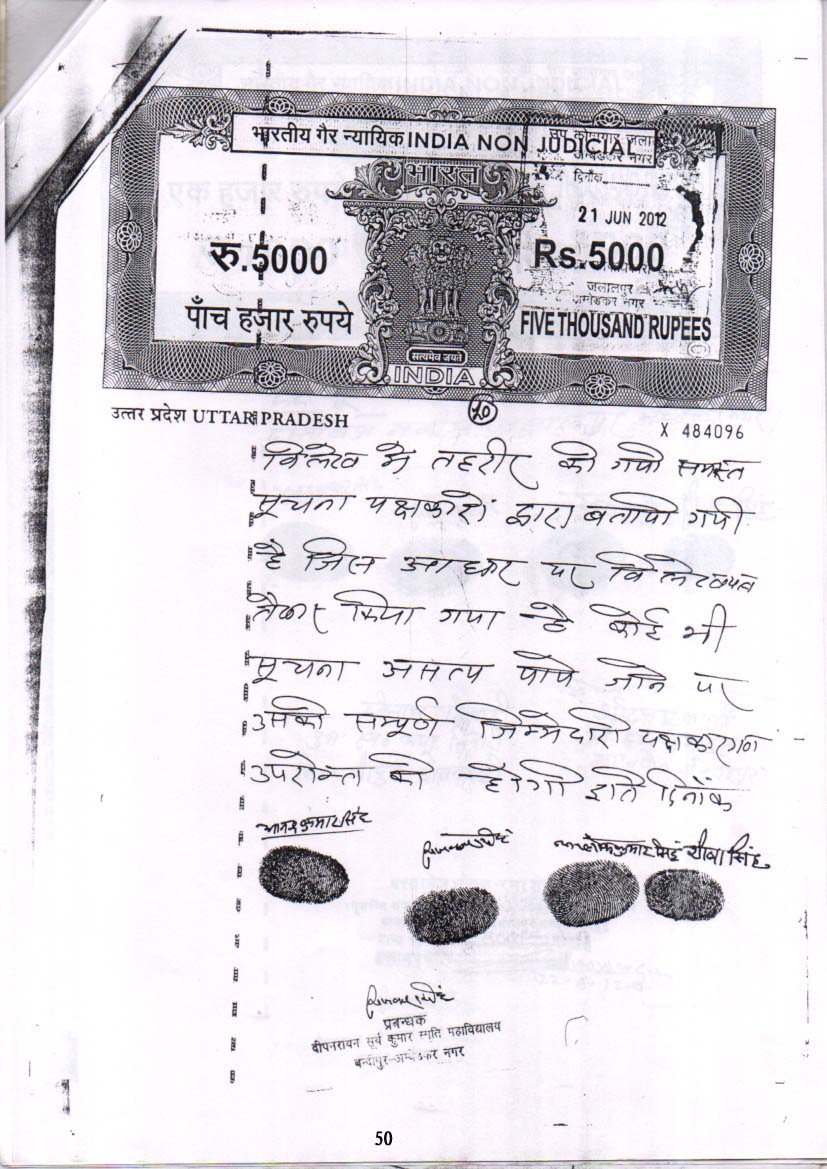 भारतीय गैर न्यायिक INDIA NON JUDICIAL
भारत
उप कोषागार जला
अम्बेडकर नगर
दिनाँक
21 JUN 2012
रु.5000
Rs.5000
जलालपुर
अम्बेडकर नगर
पाँच हजार रुपये
FIVE THOUSAND RUPEES
सत्यमेव जयते
INDIA
उत्तर प्रदेश UTTAR PRADESH
X 484096
विलेख मे तहरीर की गयी समस्त
सूचना पक्षकारों द्वारा बतायी गयी
है जिस आधार पर विलेखपत्र
तैयार किया गया है कोई भी
सूचना असत्य पाये जाने पर
उसकी सम्पूर्ण जिम्मेदारी पक्षकारगण
उपरोक्त की होगी इति दिनाँक
प्रबन्धक
दीपनरायन सूर्य कुमार स्मृति महाविद्यालय
बन्दीपुर-अम्बेडकर नगर
50